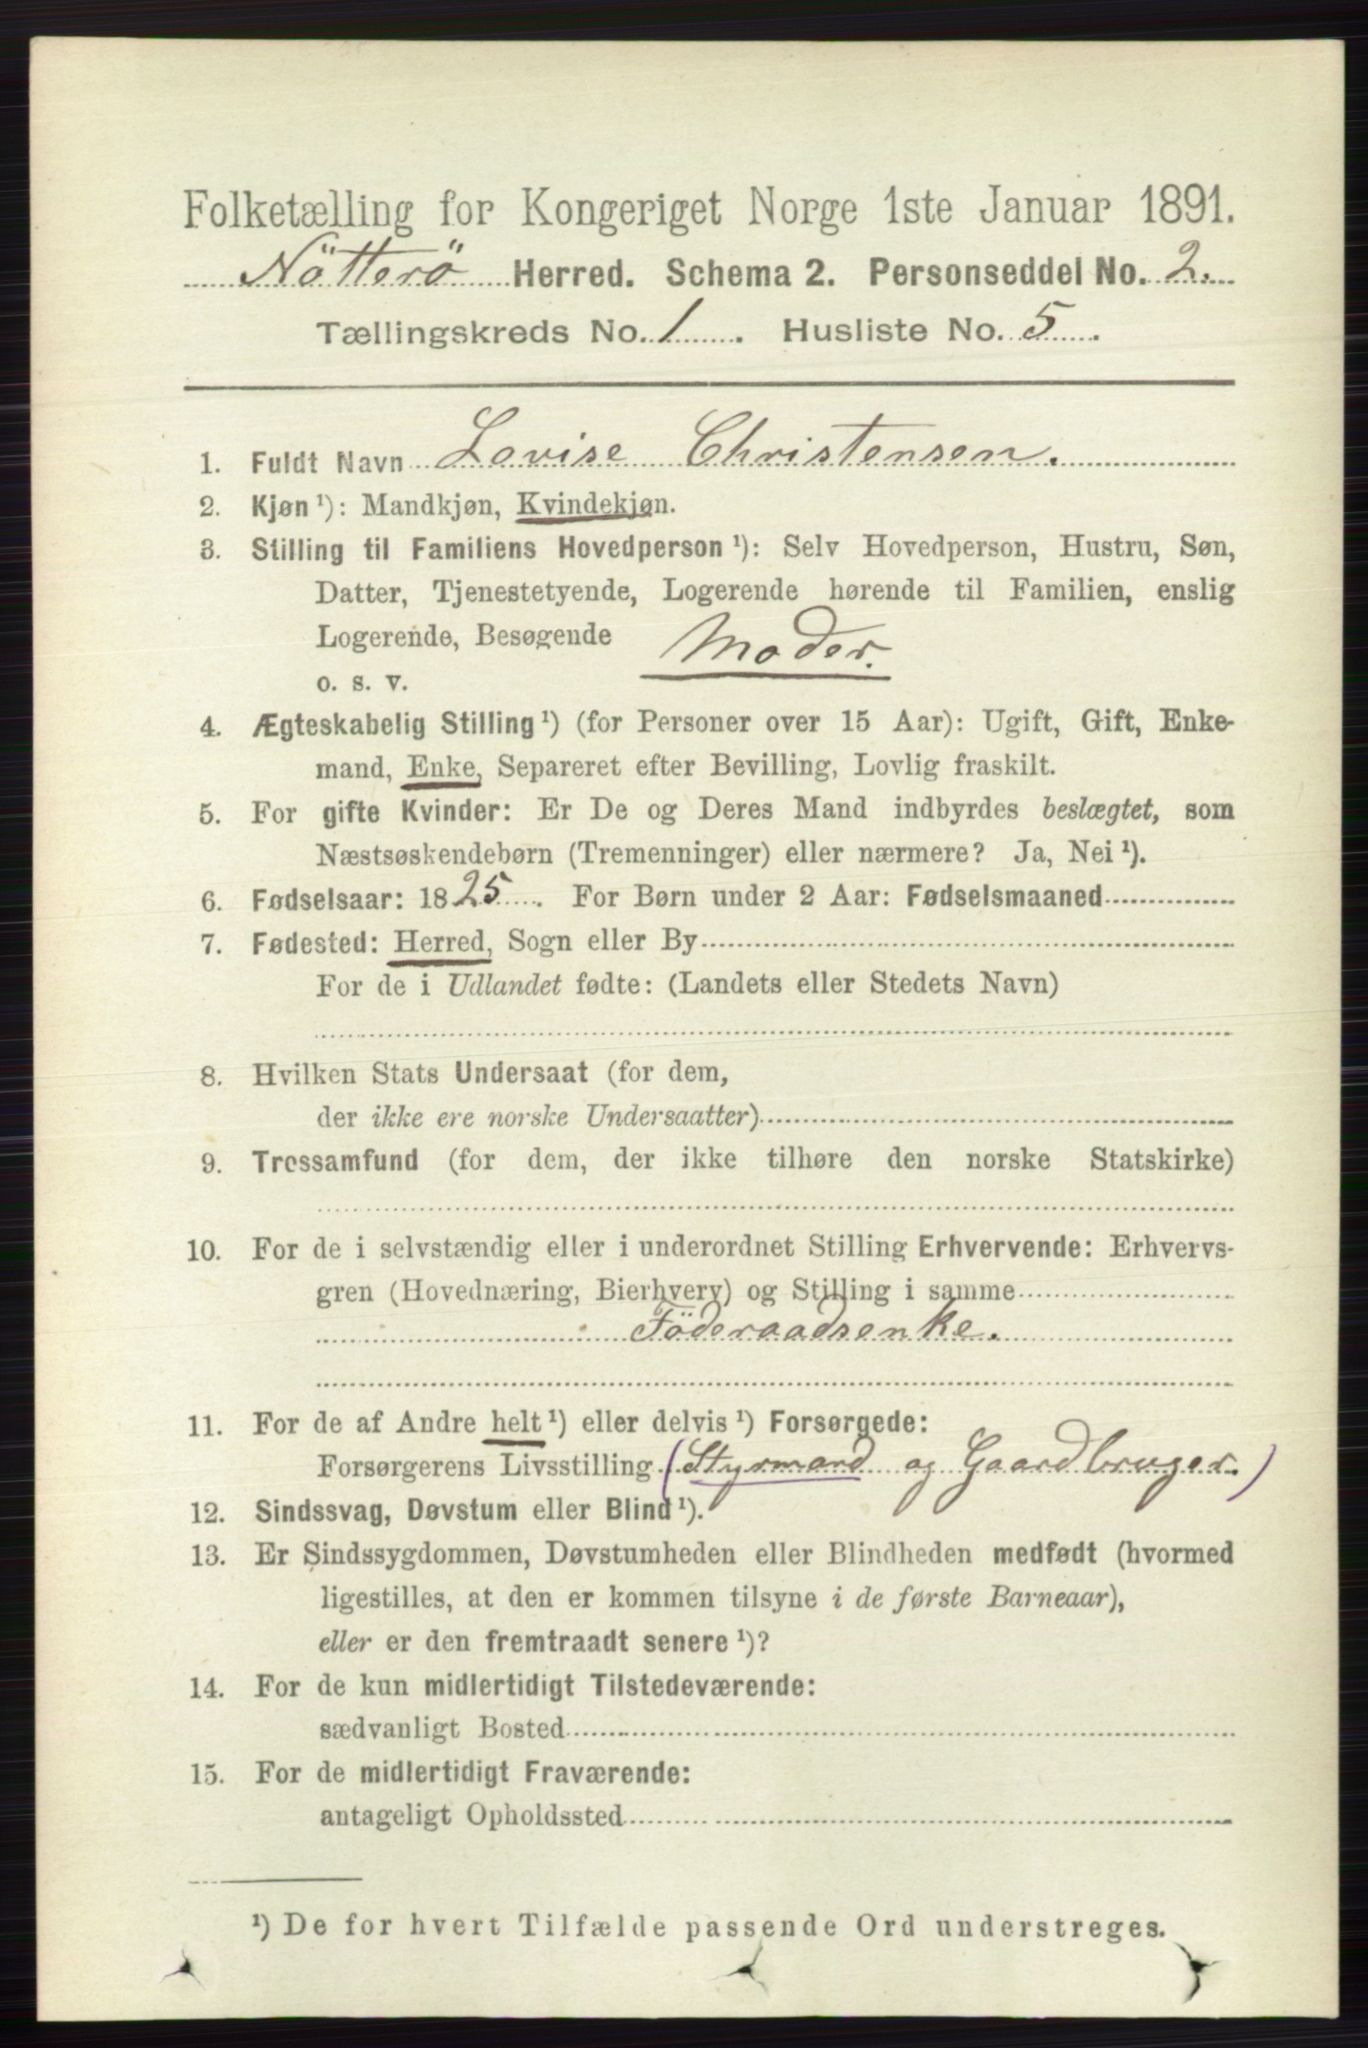 Folketælling for Kongeriget Norge 1ste Januar 1891.
Nötterö Herred. Schema 2. Personseddel No. 2.
Tællingskreds No. 1. Husliste No. 5.
1. Fuldt Navn Lovise Christensen.
2. Kjøn ¹): Mandkjøn, Kvindekjøn.
3. Stilling til Familiens Hovedperson ¹): Selv Hovedperson, Hustru, Søn,
Datter, Tjenestetyende, Logerende hørende til Familien, enslig
Logerende, Besøgende Moder.
o. s. v.
4. Ægteskabelig Stilling ¹) (for Personer over 15 Aar): Ugift, Gift, Enke-
mand, Enke, Separeret efter Bevilling, Lovlig fraskilt.
5. For gifte Kvinder: Er De og Deres Mand indbyrdes beslægtet, som
Næstsøskendebørn (Tremenninger) eller nærmere? Ja, Nei ¹).
6. Fødselsaar: 1825. For Børn under 2 Aar: Fødselsmaaned
7. Fødested: Herred, Sogn eller By
For de i Udlandet fødte: (Landets eller Stedets Navn)
8. Hvilken Stats Undersaat (for dem,
der ikke ere norske Undersaatter)
9. Trossamfund (for dem, der ikke tilhøre den norske Statskirke)
10. For de i selvstændig eller i underordnet Stilling Erhvervende: Erhvervs-
gren (Hovednæring, Bierhverv) og Stilling i samme
Föderaadsenke.
11. For de af Andre helt ¹) eller delvis ¹) Forsørgede:
Forsørgerens Livsstilling (Styrmand og Gaardbruger.)
12. Sindssvag, Døvstum eller Blind ¹).
13. Er Sindssygdommen, Døvstumheden eller Blindheden medfødt (hvormed
ligestilles, at den er kommen tilsyne i de første Barneaar),
eller er den fremtraadt senere ¹)?
14. For de kun midlertidigt Tilstedeværende:
sædvanligt Bosted
15. For de midlertidigt Fraværende:
antageligt Opholdssted
¹) De for hvert Tilfælde passende Ord understreges.